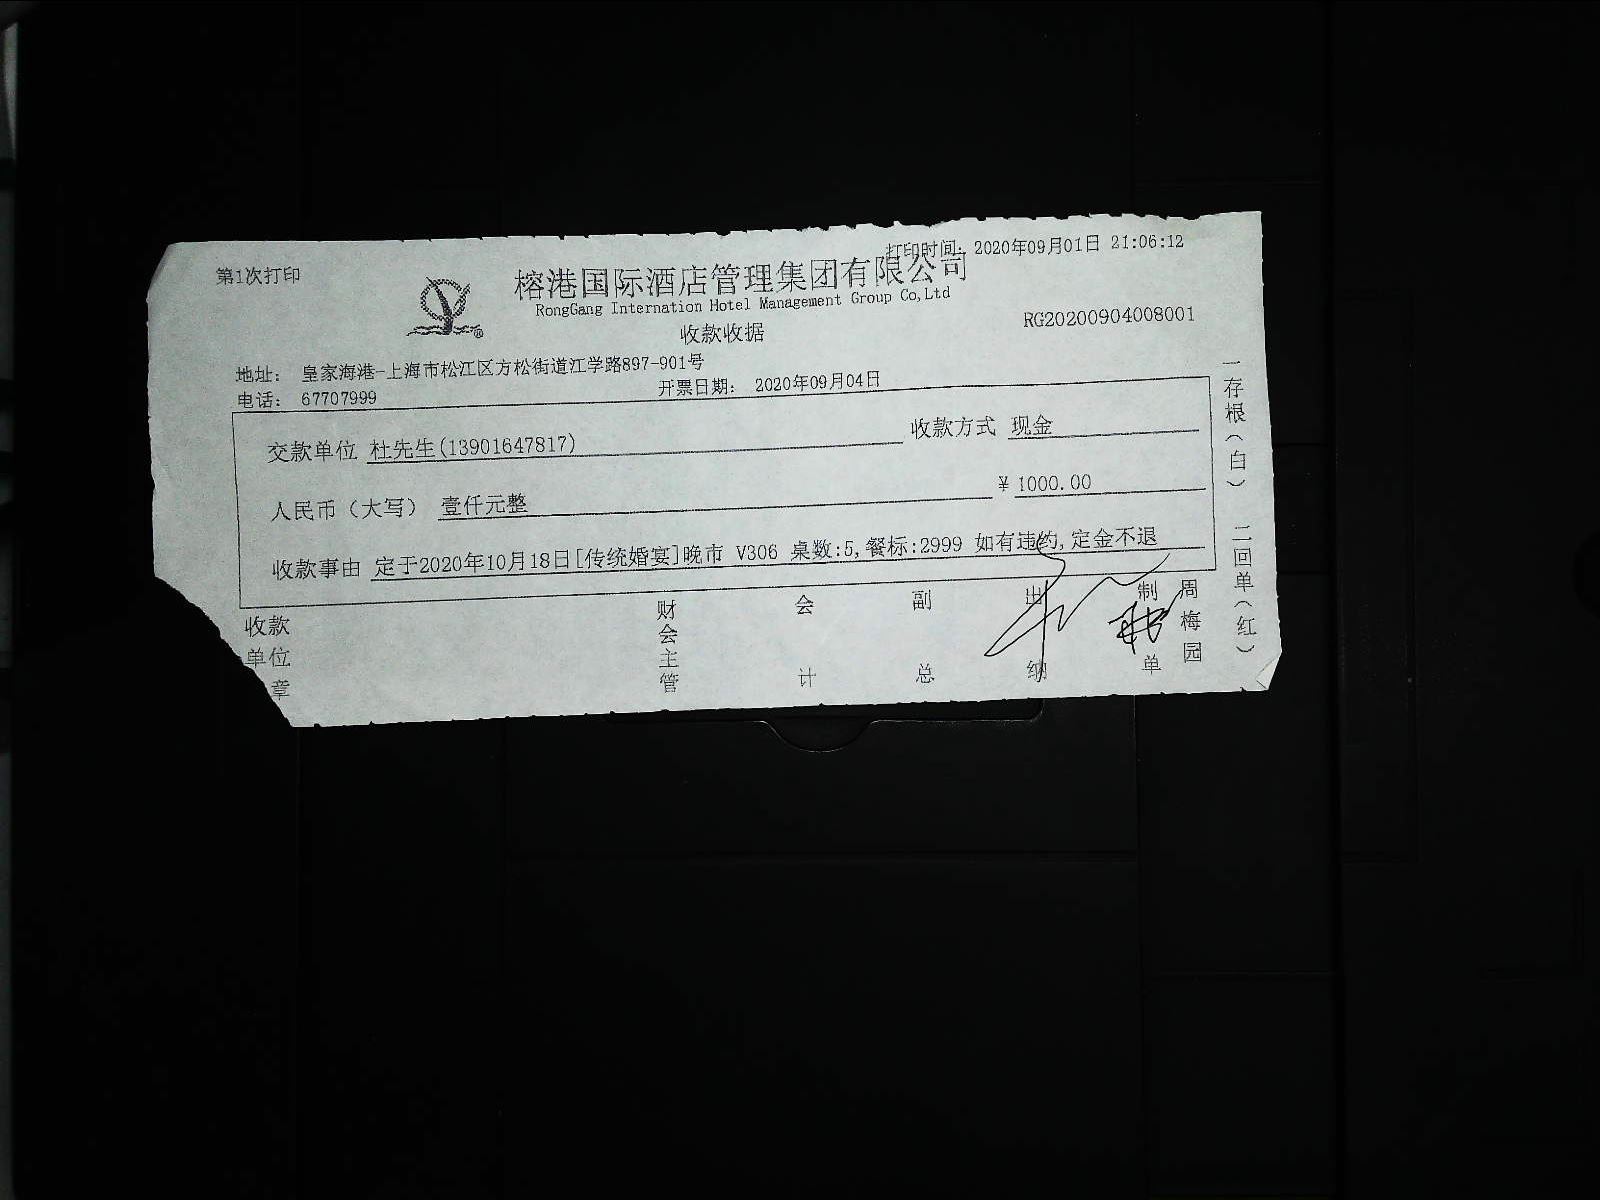 打印时间: 2020年09月01日 21:06:12
第1次打印
榕港国际酒店管理集团有限公司
RongGang Internation Hotel Management Group Co,Ltd
收款收据
RG20200904008001
地址: 皇家海港-上海市松江区方松街道江学路897-901号
电话: 67707999
开票日期: 2020年09月04日
交款单位 杜先生(13901647817) 收款方式 现金
人民币（大写） 壹仟元整 ¥ 1000.00
收款事由 定于2020年10月18日[传统婚宴]晚市 V306 桌数:5,餐标:2999 如有违约,定金不退
收款单位章
财会主管
会计
副总
出纳
制单
周梅园
一存根（白） 二回单（红）